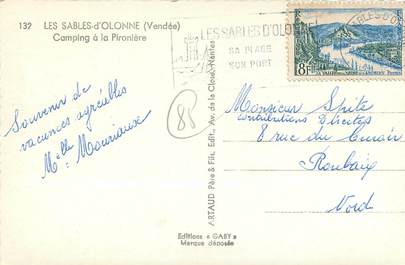 132 LES SABLES-d'OLONNE (Vendée)
Camping à la Pironière
LES SABLES D'OLONNE
SA PLAGE
SON PORT
8F
Souvenir de
vacances agréables
Melle Mouriaux
88
ARTAUD Père & Fils, Edit., Av. de la Close, Nantes
Monsieur Spite
Contributions Directes
8 rue du Curoir
Roubaix
Nord
Editions « GABY »
Marque déposée